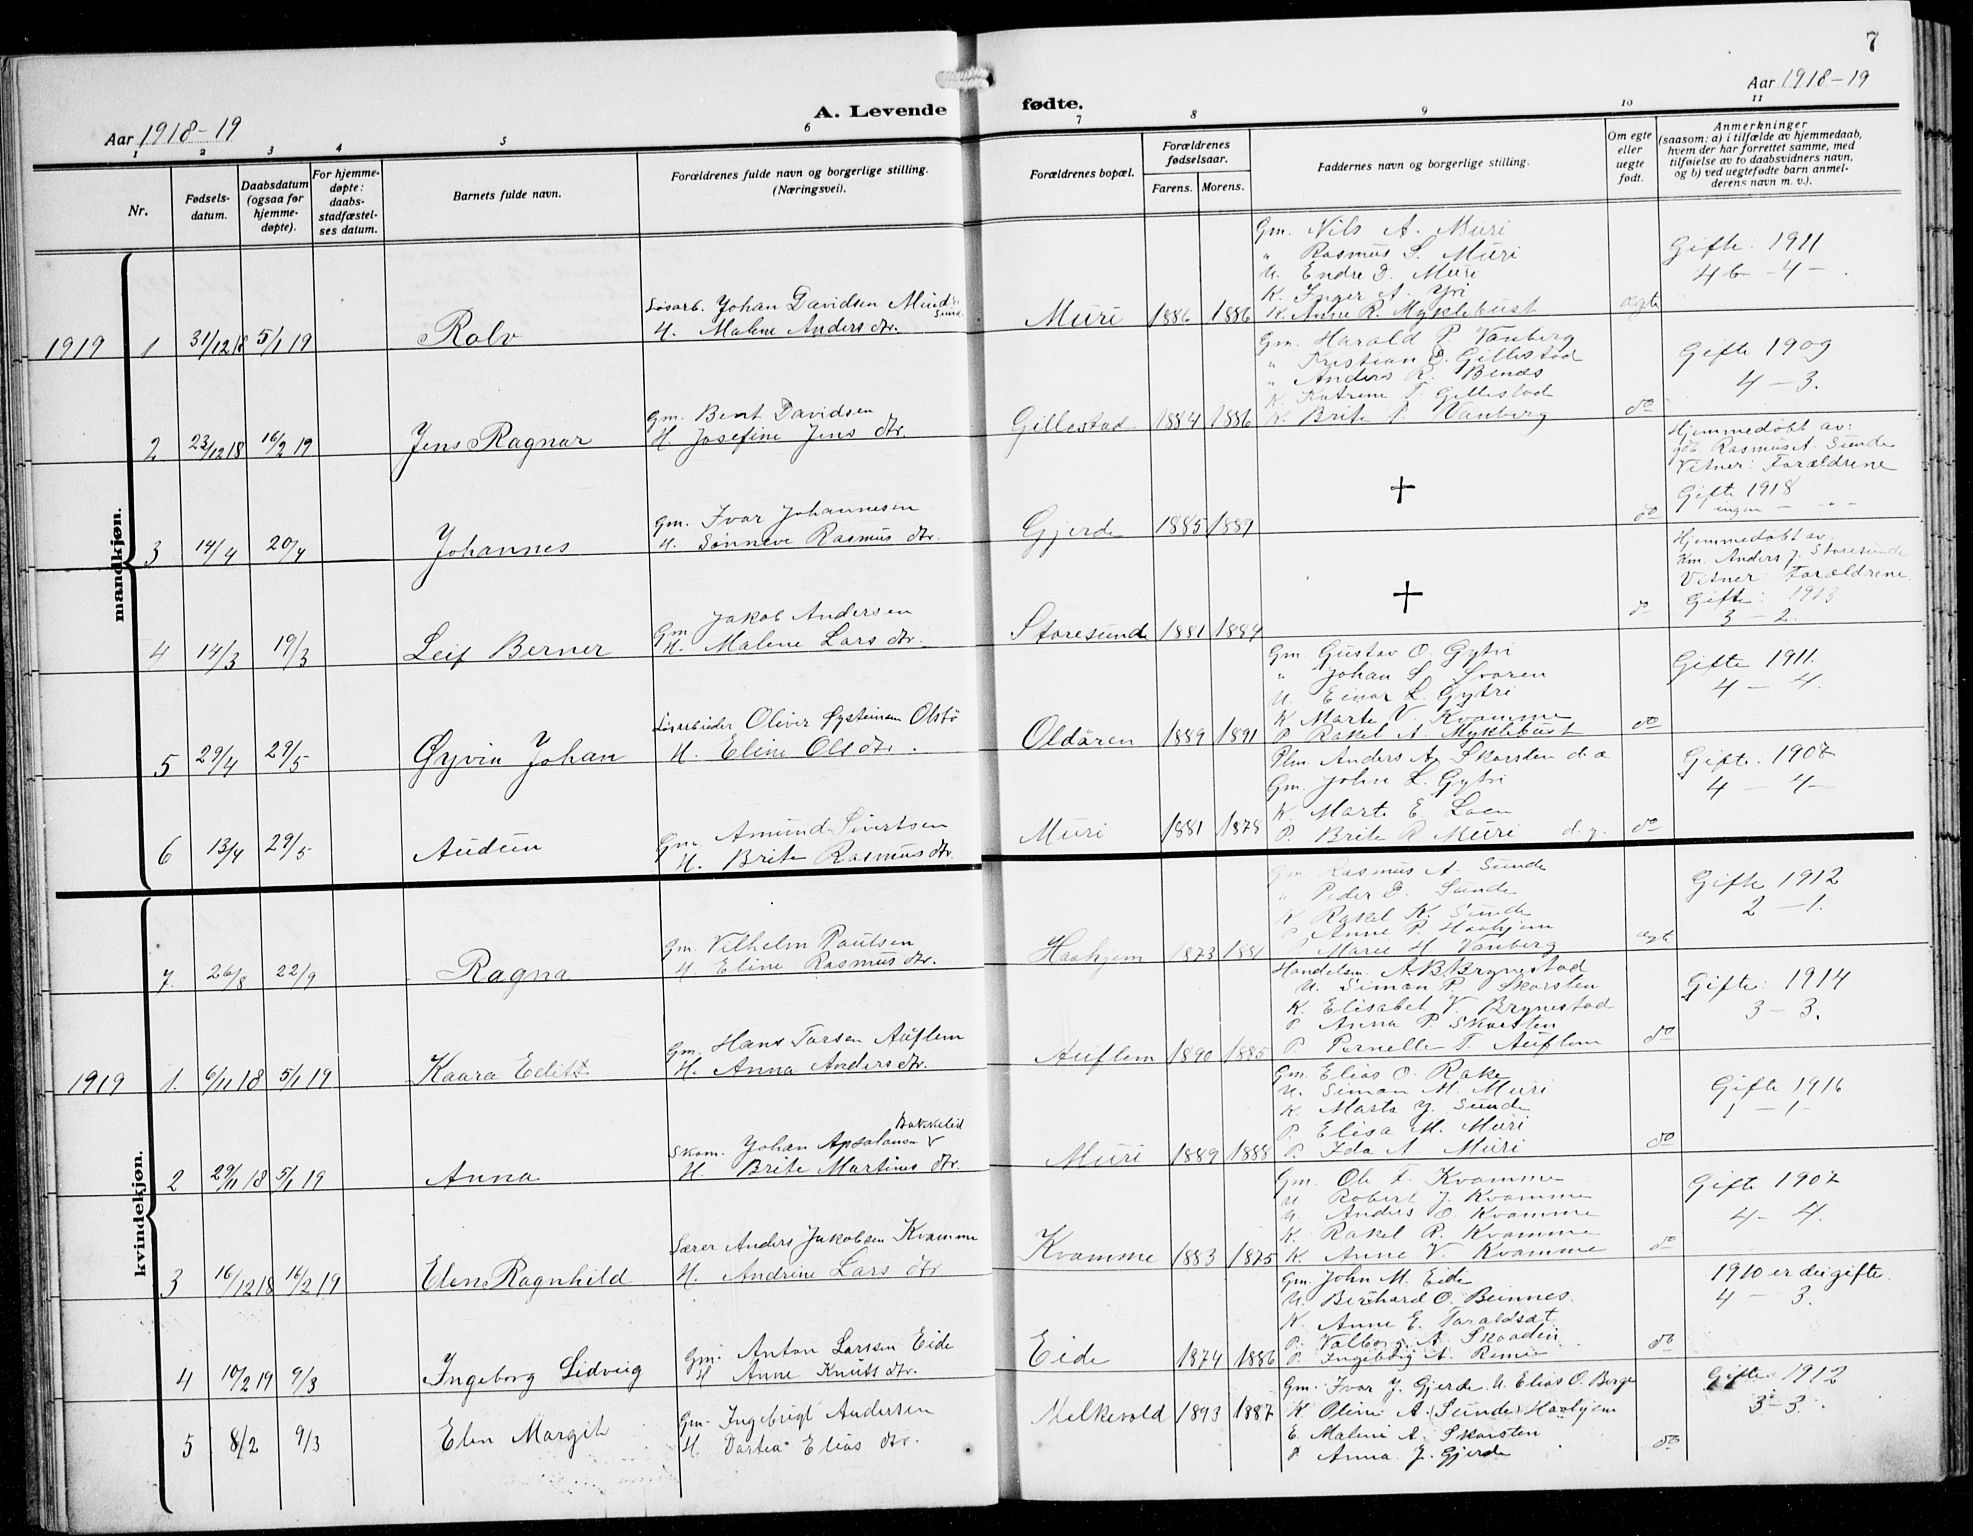 7
Aar 1918-19
A. Levende
fødte.
Aar 1918-19
1 2 3 4 5 6 7 8 9 10 11
Nr.
Fødsels-
datum.
Daabsdatum
(ogsaa før
hjemme-
døpte).
For hjemme-
døpte:
daabs-
stadfæstel-
ses datum.
Barnets fulde navn.
Forældrenes fulde navn og borgerlige stilling.
(Næringsvei).
Forældrenes bopæl.
Forældrenes
fødselsaar.
Farens. Morens.
Faddernes navn og borgerlige stilling.
Om egte
eller
uegte
født.
Anmerkninger
(saasom: a) i tilfælde av hjemmedaab,
hvem der har forrettet samme, med
tilføielse av to daabsvidners navn,
og b) ved uegtefødte barn anmel-
derens navn m. v.).
mandkjøn.
1919 1 31/12 18 5/1 19
Rolv
Løsarb. Johan Davidsen
H. Malene Anders dtr.
Muri 1886 1886
Gm. Nils A. Muri
" Rasmus S. Muri
U. Endre D. Muri
K. Inger A. Yri
K. Anne R. Myklebust
ægte
Gifte: 1911
46 - 4 -
2 23/12 18 16/2 19
Jens Ragnar
Gm. Bent Davidsen
H. Josefine Jens dtr.
Gillestad 1884 1886
Gm. Harald P. Vanberg
" Kristian O. Gillestad
" Anders R. Benes
K. Katrine T. Gillestad
K. Brite P. Vanberg
do
Gifte 1909
4 - 3.
3 14/4 20/4
Johannes
Gm. Ivar Johannesen
H. Sønneve Rasmus dtr.
Gjerde 1885 1889
†
do
Hjemmedøbt av:
Rasmus A. Sunde
Vitner: Forældrene
Gifte 1918
ingen - - -
4 14/3 19/3
Leif Berner
Gm Jakob Andersen
H. Malene Lars dtr.
Storesunde 1881 1889
†
do
Hjemmedøbt av
Km. Anders J. Storesunde
Vitner: Forældrene
Gifte: 1913
3 - 2.
5 29/4 29/5
Øyvin Johan
Løsarbeider Oliver Systeinsen
H. Eline Ols dtr.
Oldøren 1889 1891
Gm. Gustav O. Gytri
" Johan S. Svoren
U. Einar L. Gytri
K. Marte V. Kvamme
P. Rakel A. Myklebust
do
Gifte 1911.
4 - 4.
6 13/4 29/5
Audun
Gm. Amund Sivertsen
H. Brite Rasmus dtr.
Muri 1881 1878
Anders A. Skarsten d.a
Gm. John L. Gytri
K. Marte E. Loen
P. Brite R. Muri d.y.
do
Gifte: 1907
4 - 4 -
7. 26/8 22/9
Ragna
Gm. Vilhelm Paulsen
H Eline Rasmus dtr.
Haahjem 1873 1881
Gm. Rasmus A. Sunde
" Peder D. Sunde
K Rakel K. Sunde
P Anne P. Haahjem
P Marie H. Vanberg
ægte
Gifte 1912
2 - 1.
kvindekjøn.
1919 1. 6/11 18 5/1 19
Kaara Edith
Gm. Hans Tarsen Auflem
H. Anna Anders dtr.
Auflem 1890 1885
Handelsm. A. B. Brynestad
U. Simon P. Skarsten
K. Elisabet V. Brynestad
P Anna P. Skarsten
P. Pernelle T. Auflem
do
Gifte: 1914
3 - 3.
2 29/11 18 5/1 19
Anna
Bakkelid
Skom. Johan Apsalonsen
H. Brite Martinus dtr.
Muri 1889 1888
Gm. Elias O. Rake
U. Simon M. Muri
K. Marta J. Sunde
P. Elisa M. Muri
P. Ida A. Muri
do
Gifte 1916
1 - 1
3 16/12 18 16/2 19
Elens Ragnhild
Lærer Anders Jakobsen Kvamme
H. Andrine Lars dtr
Kvamme 1883 1875
Gm. Ole F. Kvamme
U Robert J. Kvamme
U. Anders O. Kvamme
K. Rakel R. Kvamme
K. Anne V. Kvamme
do
Gifte 1907
4 - 4.
4 10/2 19 9/3
Ingeborg Lidveig
Gm. Anton Larssen Eide
H Anne Knuts dtr.
Eide 1874 1886
Gm. John M. Eide
U. Bernhard O. Beinnes.
K. Anne E. Taraldset
P. Valborg A. Skaadin
P. Ingeborg A.
do
1910 er dei gifte.
4 - 3.
5 8/2 9/3
Elen Margit
Gm. Ingebrigt Andersen
H. Dortea Elias dtr.
Melkevold 1893 1887
Gm. Ivar J. Gjerde. U. Elias O. Berge
K. Oline A. (Sunde) Haahjem
E. Malene A. Skarsten
P Anna J. Gjerde
do
Gifte 1912
3 - 3.